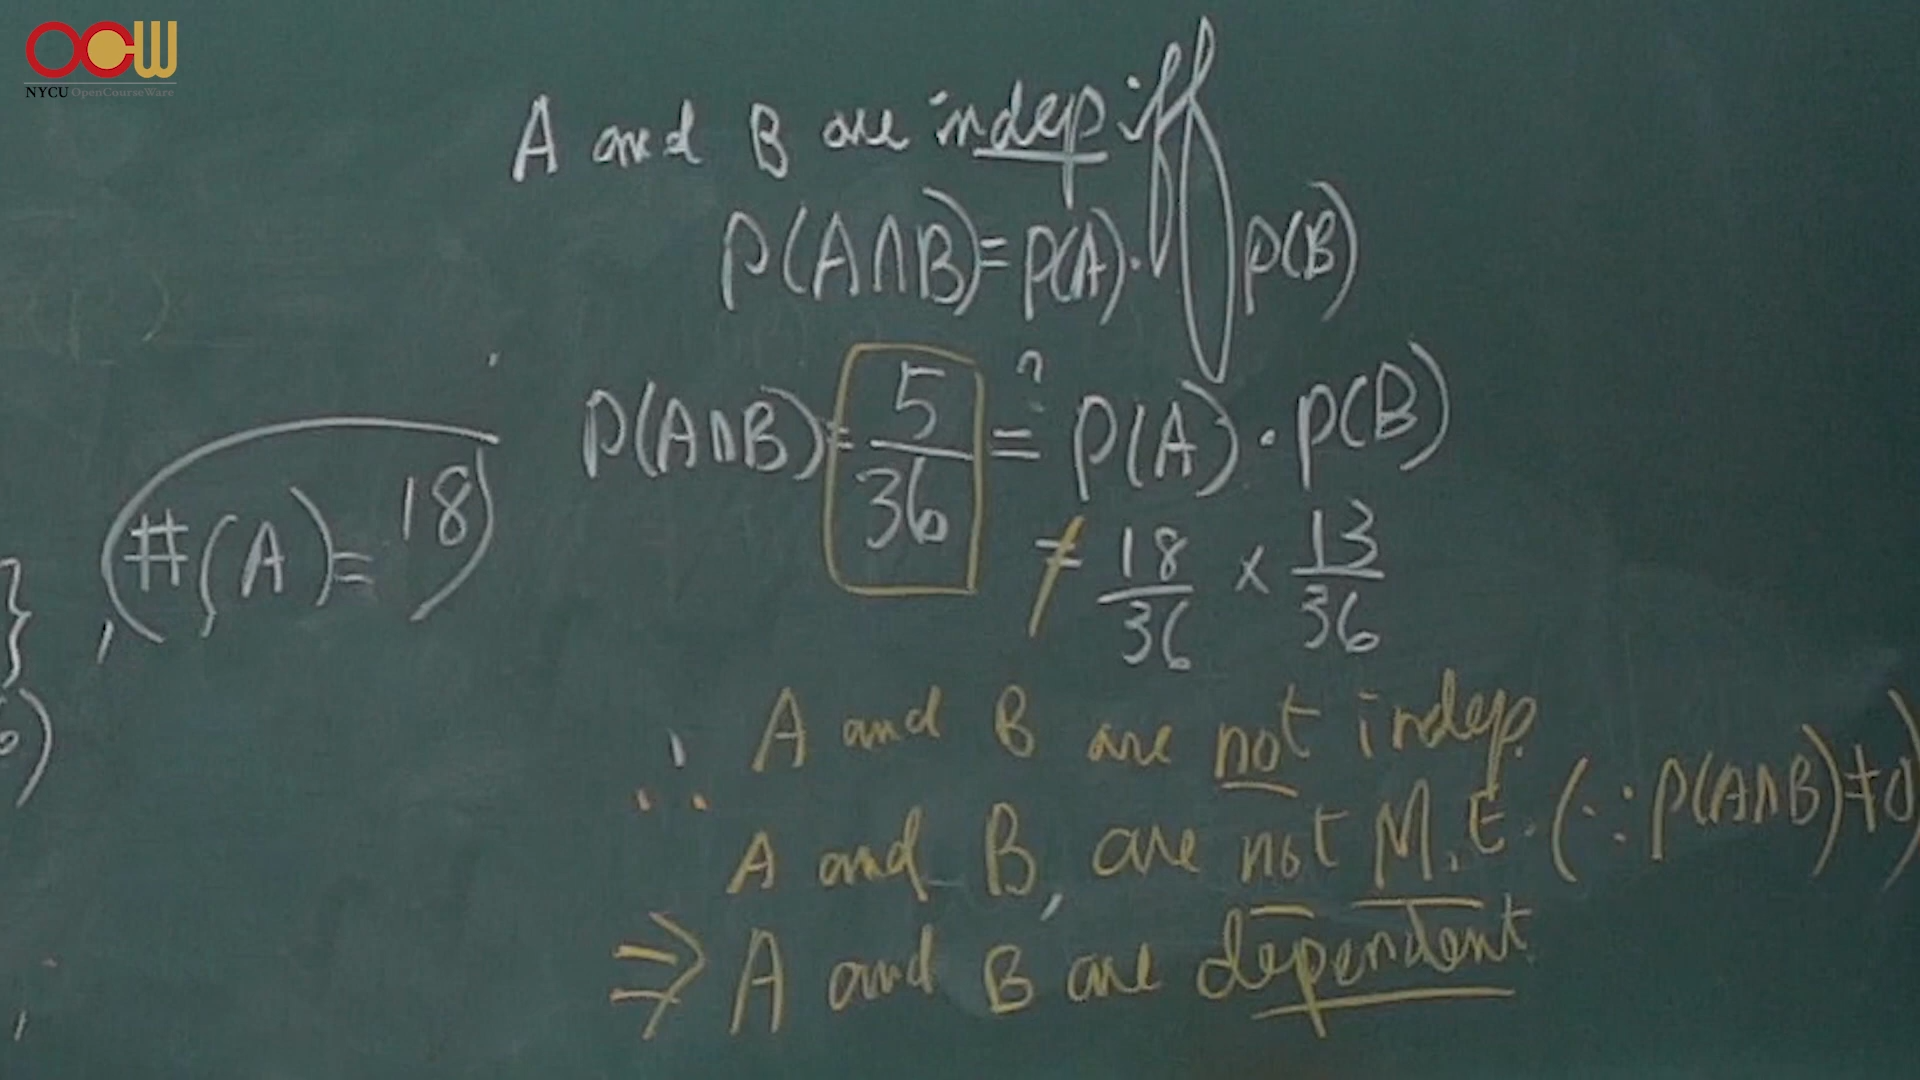 OCW
NYCU OpenCourseWare
A and B are indep iff
P(A∩B)=P(A)·P(B)
P(A∩B)=5/36 ?= P(A)·P(B)
#(A)=18
≠ 18/36 × 13/36
}
∴ A and B are not indep.
A and B, are not M.E. (∵ P(A∩B)≠0)
⇒ A and B are dependent